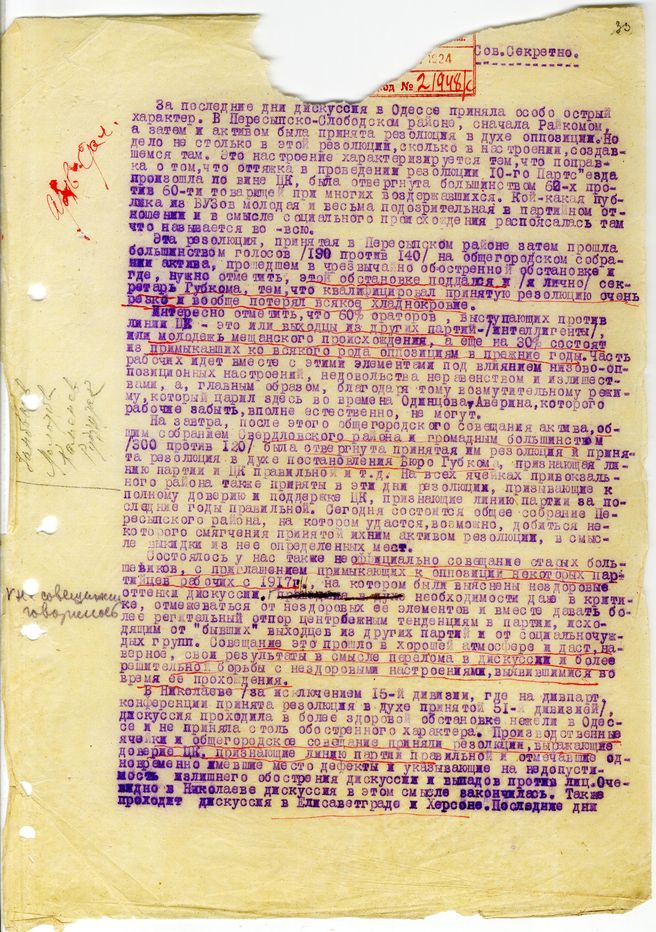 33
Сов.Секретно.
1924
ОД № 2/948/с
За последние дни дискуссия в Одессе приняла особо острый
характер. В Пересыпско-Слободском районе, сначала Райкомом,
а затем и активом была принята резолюция в духе оппозиции.Но
дело не столько в этой резолюции,сколько в настроении,создав-
шемся там. Это настроение характеризируется тем,что поправ-
ка о том,что оттяжка в проведении резолюции 10-го Партс"езда
произошла по вине ЦК, была отвергнута большинством 62-х про-
тив 60-ти товарищей при многих воздержавшихся. Кой-какая пуб-
лика из ВУЗов молодая и весьма подозрительная в партийном от-
ношении и в смысле социального происхождения распоясалась там
что называется во -всю.
Эта резолюция, принятая в Пересыпском районе затем прошла
большинством голосов /190 против 140/ на общегородском собра-
нии актива, прошедшем в чрезвычайно обостренной обстановке и
где, нужно отметить, этой обстановке поддался и /я лично/ сек-
ретарь Губкома, тем,что квалифицировал принятую резолюцию очень
резко и вообще потерял всякое хладнокровие.
Интересно отметить,что 60% ораторов, выступающих против
линии ЦК - это или выходцы из других партий-/интеллигенты/,
или молодежь мещанского происхождения, а еще на 30% состоят
из примыкавших ко всякого рода оппозициям в прежние годы.Часть
рабочих идет вместе с этими элементами под влиянием низово-оп-
позиционных настроений, недовольства неравенством и излишест-
вами, а, главным образом, благодаря тому возмутительному режи-
му,который царил здесь во времена Одинцова,Аверина,которого
рабочие забыть,вполне естественно, не могут.
На завтра, после этого общегородского совещания актива,об-
щим собранием Свердловского района и громадным большинством
/300 против 120/ была отвергнута принятая им резолюция и приня-
та резолюция в духе постановления Бюро Губкома, признающая ли-
нию партии и ЦК правильной и т.д. На всех ячейках привокзаль-
ного района также приняты в эти дни резолюции, призывающие к
полному доверию и поддержке ЦК, признающие линию партии за по-
следние годы правильной. Сегодня состоится общее собрание Пе-
ресыпского района, на котором удастся,возможно, добиться не-
которого смягчения принятой ихним активом резолюции, в смыс-
ле выкидки из нее определенных мест.
Состоялось у нас также неофициально совещание старых боль-
шевиков, с приглашением примыкающих к оппозиции некотрых пар-
тийцев рабочих с 1917г., на котором были выяснены нездоровые
оттенки дискуссии, необходимости даже в крити-
ке, отмежеваться от нездоровых ее элементов и вместе давать бо-
лее регительный отпор центробежным тенденциям в партии, исхо-
дящим от "бывших" выходцев из других партий и от социальночуж-
дых групп. Совещание это прошло в хорошей атмосфере и даст,на-
верное, свои результаты в смысле перелома в дискуссии и более
решительной борьбы с нездоровыми настроениями,выявившимися во
время ее прохождения.
В Николаеве /за исключением 15-й дивизии, где на дивпарт.
конференции принята резолюция в духе принятой 51-й дивизией/,
дискуссия проходила в более здоровой обстановке нежели в Одес-
се и не приняла столь обостренного характера. Производственные
ячейки и общегородское совещание приняли резолюции,выражающие
доверие ЦК, признающие линию партии правильной и отмечавшие од-
новременно имевшие место дефекты и указывающие на недопусти-
мость излишнего обострения дискуссии и выпадов против лиц.Оче-
видно в Николаеве дискуссия в этом смысле закончилась. Также
проходит дискуссия в Елисаветграде и Херсоне.Последние дни